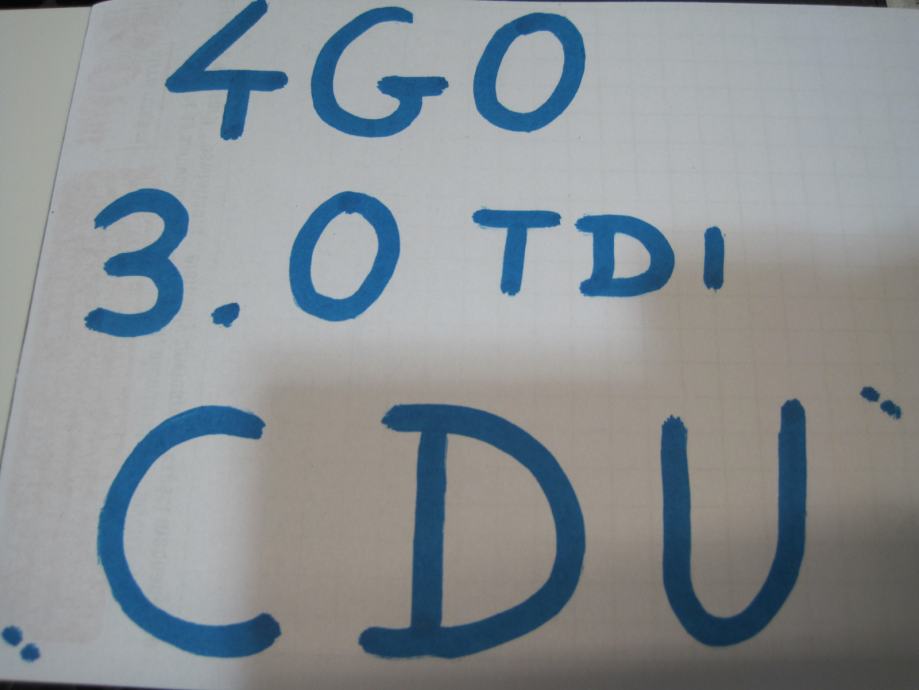 4GO
3.0 TDI
CDU